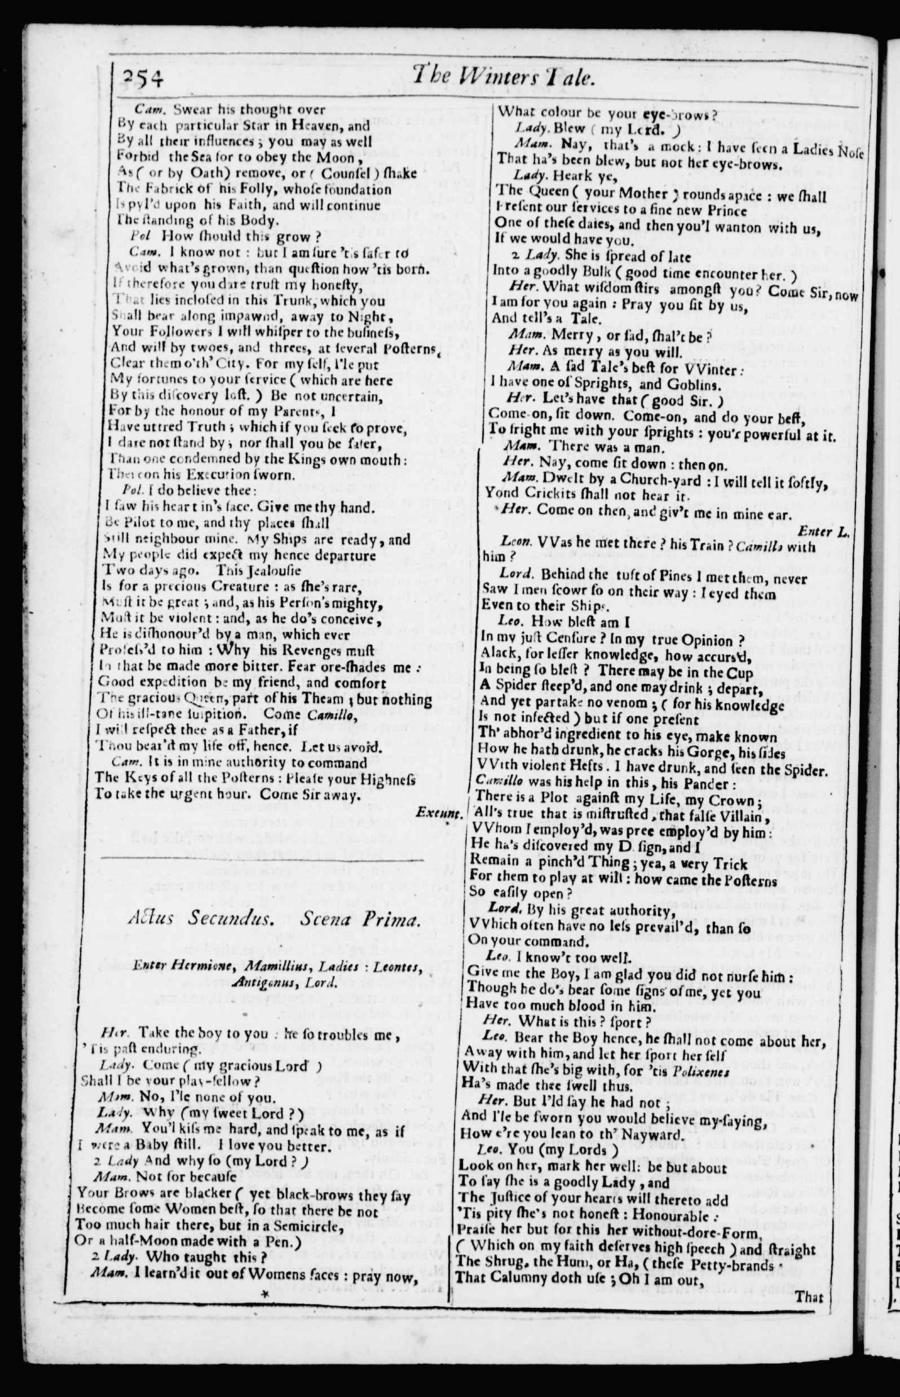 254
The Winters Tale.
Cam. Swear his thought over
By each particular Star in Heaven, and
By all their influences ; you may as well
Forbid the Sea for to obey the Moon ,
As ( or by Oath) remove, or ( Counsel ) ſhake
The Fabrick of his Folly, whoſe foundation
Is pyl'd upon his Faith, and will continue
The ſtanding of his Body.
Pol How ſhould this grow ?
Cam. I know not : but I am ſure 'tis ſafer to
Avoid what's grown, than queſtion how 'tis born.
If therefore you dare truſt my honeſty,
That lies incloſed in this Trunk, which you
Shall bear along impawnd, away to Night ,
Your Followers I will whiſper to the buſineſs,
And will by twoes, and threes, at ſeveral Poſterns,
Clear them o'th' City. For my ſelf, I'le put
My fortunes to your ſervice ( which are here
By this diſcovery loſt. ) Be not uncertain,
For by the honour of my Parents, I
Have uttred Truth ; which if you ſeek to prove,
I dare not ſtand by ; nor ſhall you be ſafer,
Than one condemned by the Kings own mouth :
Thereon his Execution ſworn.
Pol. I do believe thee :
I ſaw his heart in's face. Give me thy hand.
Be Pilot to me, and thy places ſhall
Still neighbour mine. My Ships are ready, and
My people did expect my hence departure
Two days ago. This Jealouſie
Is for a precious Creature : as ſhe's rare,
Muſt it be great ; and, as his Perſon's mighty,
Muſt it be violent : and, as he do's conceive ,
He is diſhonour'd by a man, which ever
Profeſs'd to him : Why his Revenges muſt
In that be made more bitter. Fear ore-ſhades me :
Good expedition be my friend, and comfort
The gracious Queen, part of his Theam ; but nothing
Of his ill-tane ſuſpition. Come Camillo,
I will reſpect thee as a Father, if
Thou bear'ſt my life off, hence. Let us avoid.
Cam. It is in mine authority to command
The Keys of all the Poſterns : Pleaſe your Highneſs
To take the urgent hour. Come Sir away.
Exeunt.
Actus Secundus. Scena Prima.
Enter Hermione, Mamillius, Ladies : Leontes,
Antigonus, Lord.
Her. Take the boy to you : he ſo troubles me ,
'Tis paſt enduring.
Lady. Come ( my gracious Lord )
Shall I be your play-fellow ?
Mam. No, I'le none of you.
Lady. Why (my ſweet Lord ?)
Mam. You'l kiſs me hard, and ſpeak to me, as if
I were a Baby ſtill. I love you better.
2 Lady And why ſo (my Lord ? )
Mam. Not for becauſe
Your Brows are blacker ( yet black-brows they ſay
Become ſome Women beſt, ſo that there be not
Too much hair there, but in a Semicircle,
Or a half-Moon made with a Pen.)
2 Lady. Who taught this ?
Mam. I learn'd it out of Womens faces : pray now,
*
What colour be your eye-brows ?
Lady. Blew ( my Lord. )
Mam. Nay, that's a mock : I have ſeen a Ladies Noſe
That ha's been blew, but not her eye-brows.
Lady. Heark ye,
The Queen ( your Mother ) rounds apace : we ſhall
Preſent our ſervices to a fine new Prince
One of theſe daies, and then you'l wanton with us,
If we would have you.
2 Lady. She is ſpread of late
Into a goodly Bulk ( good time encounter her. )
Her. What wiſdom ſtirs amongſt you ? Come Sir, now
I am for you again : Pray you ſit by us,
And tell's a Tale.
Mam. Merry , or ſad, ſhal't be ?
Her. As merry as you will.
Mam. A ſad Tale's beſt for VVinter :
I have one of Sprights, and Goblins.
Her. Let's have that ( good Sir. )
Come-on, ſit down. Come-on, and do your beſt,
To fright me with your ſprights : you'r powerful at it.
Mam. There was a man.
Her. Nay, come ſit down : then on.
Mam. Dwelt by a Church-yard : I will tell it ſoftly,
Yond Crickits ſhall not hear it.
Her. Come on then, and giv't me in mine ear.
Enter L.
Leon. VVas he met there ? his Train ? Camillo with
him ?
Lord. Behind the tuft of Pines I met them, never
Saw I men ſcowr ſo on their way : I eyed them
Even to their Ships.
Leo. How bleſt am I
In my juſt Cenſure ? In my true Opinion ?
Alack, for leſſer knowledge, how accurs'd,
In being ſo bleſt ? There may be in the Cup
A Spider ſteep'd, and one may drink ; depart,
And yet partake no venom ; ( for his knowledge
Is not infected ) but if one preſent
Th' abhor'd ingredient to his eye, make known
How he hath drunk, he cracks his Gorge, his ſides
VVith violent Hefts. I have drunk, and ſeen the Spider.
Camillo was his help in this , his Pander :
There is a Plot againſt my Life, my Crown ;
All's true that is miſtruſted, that falſe Villain ,
VVhom I employ'd, was pree employ'd by him :
He ha's diſcovered my Deſign, and I
Remain a pinch'd Thing ; yea, a very Trick
For them to play at will : how came the Poſterns
So eaſily open ?
Lord. By his great authority,
VVhich often have no leſs prevail'd, than ſo
On your command.
Leo. I know't too well.
Give me the Boy, I am glad you did not nurſe him :
Though he do's bear ſome ſigns of me, yet you
Have too much blood in him.
Her. What is this ? ſport ?
Leo. Bear the Boy hence, he ſhall not come about her,
Away with him, and let her ſport her ſelf
With that ſhe's big with, for 'tis Polixenes
Ha's made thee ſwell thus.
Her. But I'ld ſay he had not ;
And I'le be ſworn you would believe my-ſaying,
How e're you lean to th' Nayward.
Leo. You (my Lords )
Look on her, mark her well : be but about
To ſay ſhe is a goodly Lady , and
The Juſtice of your hearts will thereto add
'Tis pity ſhe's not honeſt : Honourable :
Praiſe her but for this her without-dore-Form,
( Which on my faith deſerves high ſpeech ) and ſtraight
The Shrug, the Hum, or Ha, ( theſe Petty-brands
That Calumny doth uſe ; Oh I am out,
That